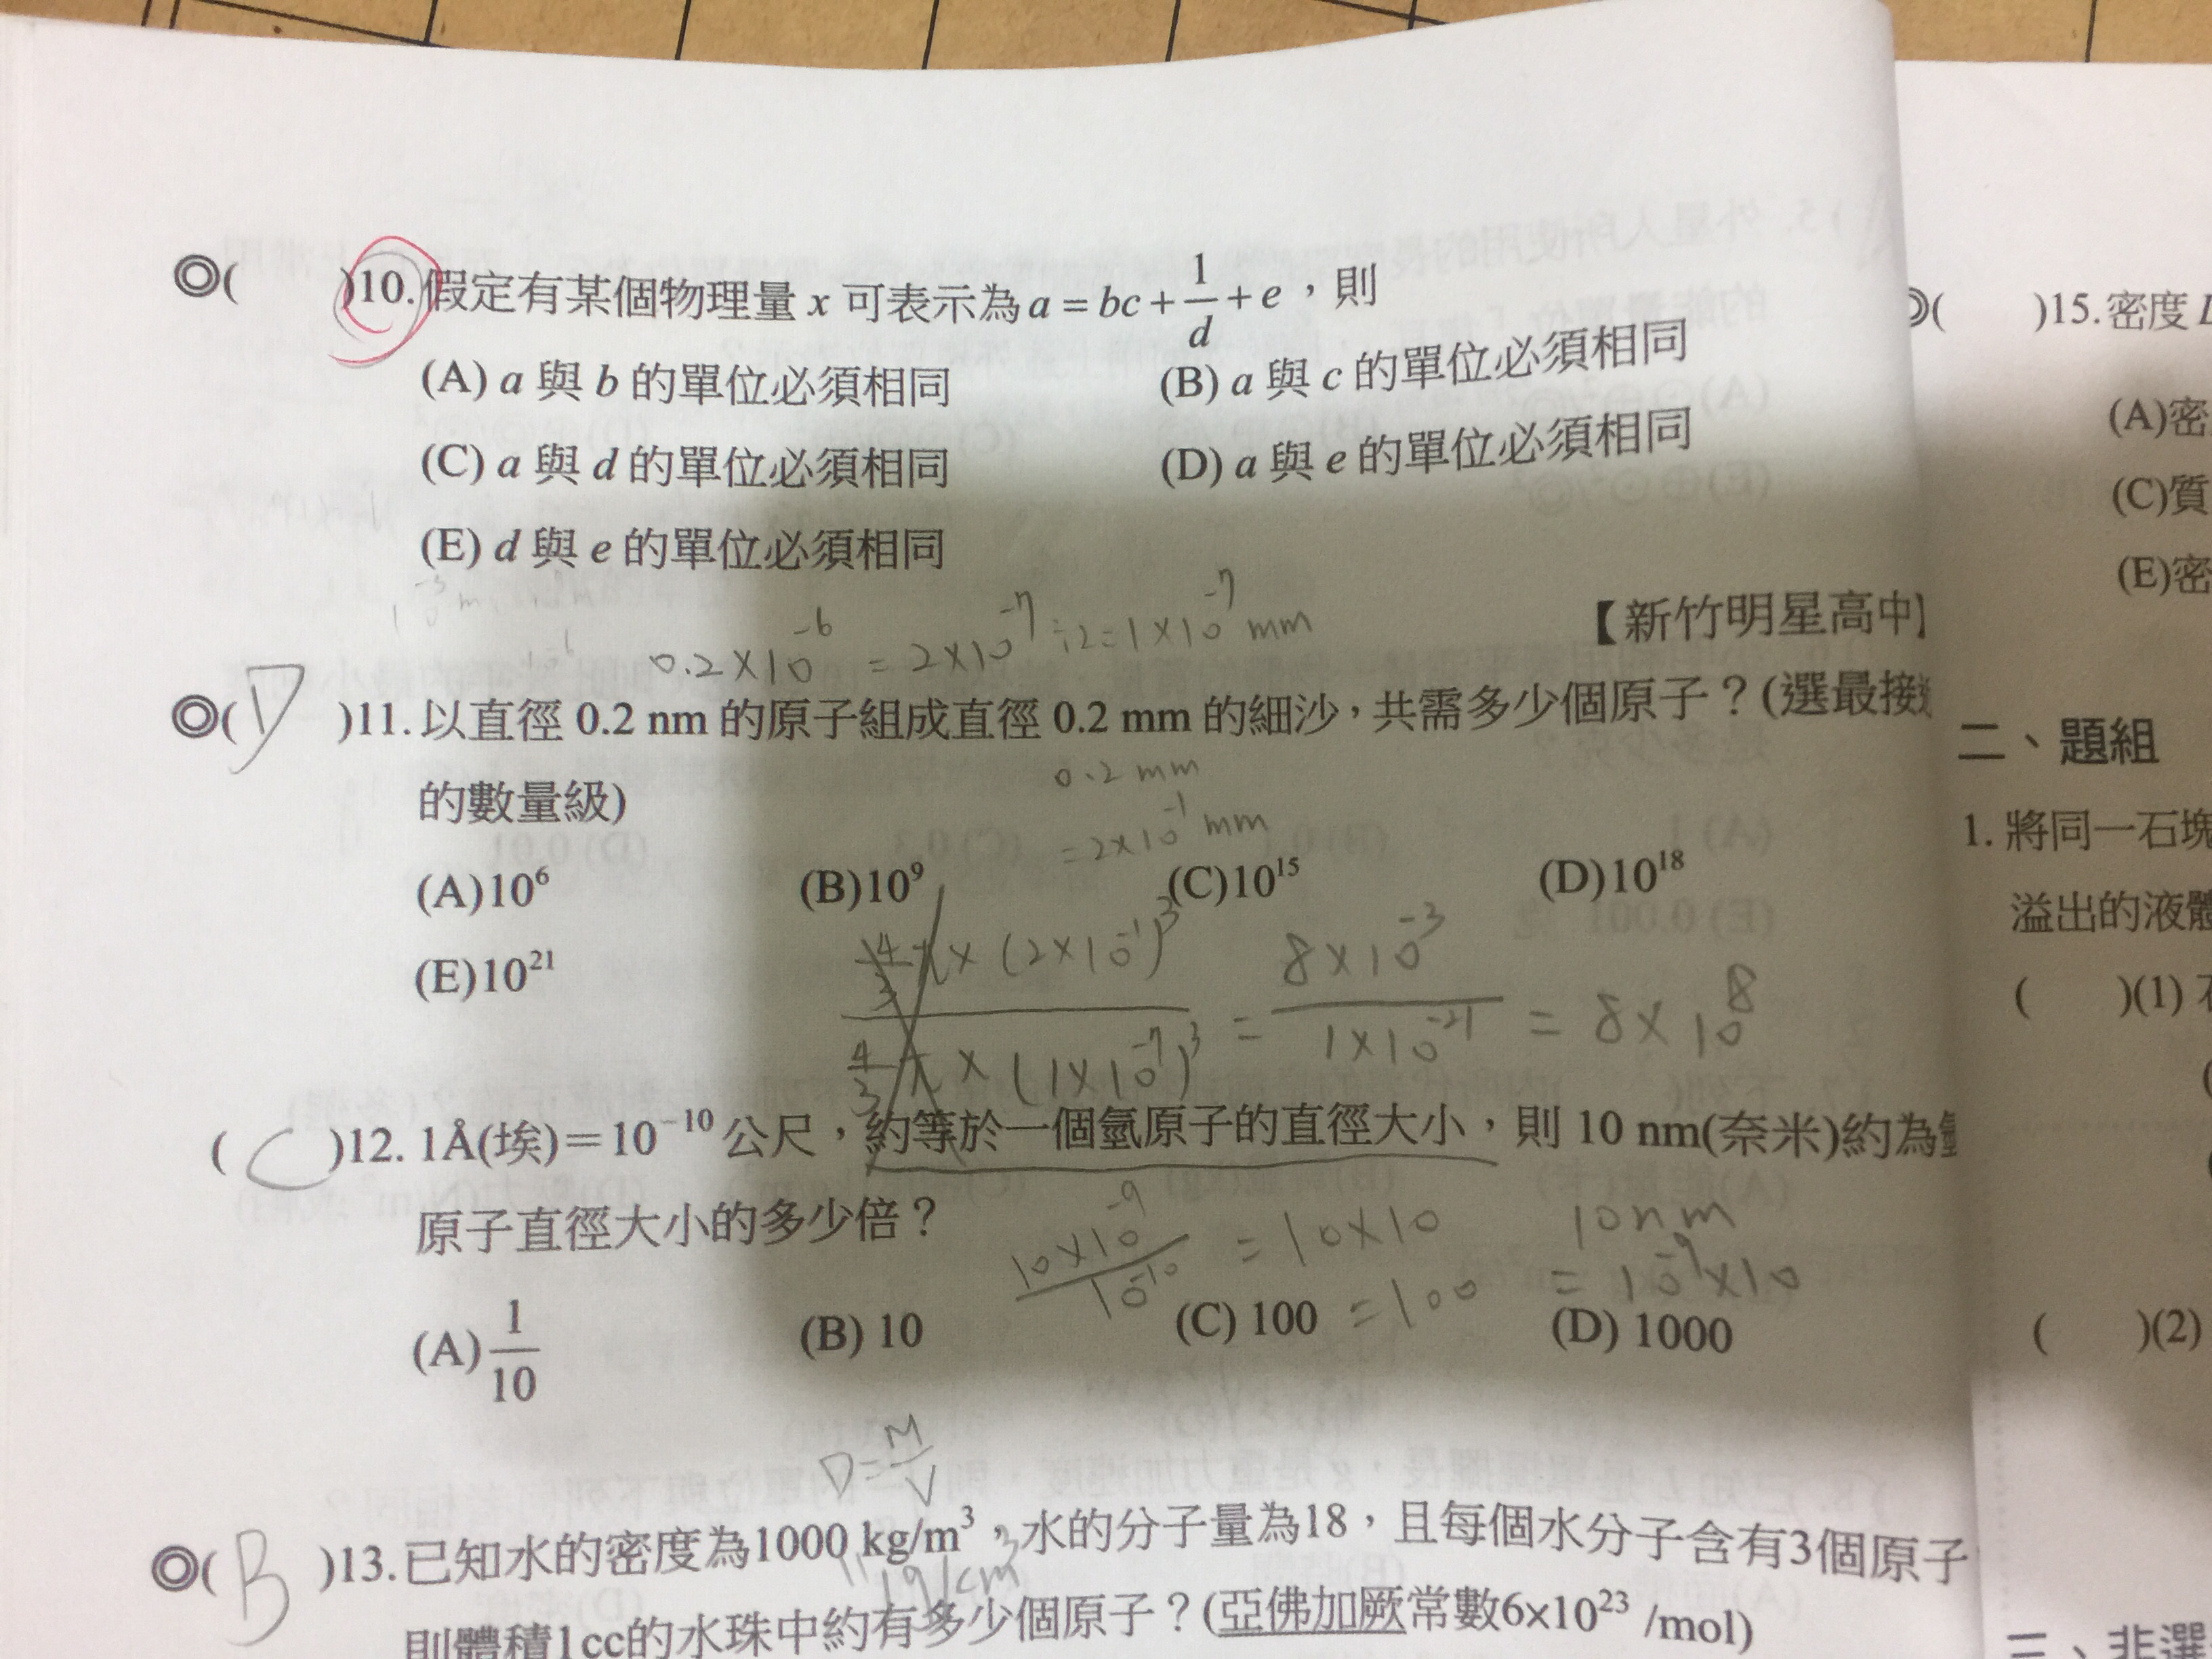 ◎( )10.假定有某個物理量 x 可表示為 a = bc + 1/d + e，則
(A) a 與 b 的單位必須相同 (B) a 與 c 的單位必須相同
(C) a 與 d 的單位必須相同 (D) a 與 e 的單位必須相同
(E) d 與 e 的單位必須相同
【新竹明星高中】
0.2×10⁻⁶ = 2×10⁻⁷ ÷2=1×10⁻⁷ mm
◎( D )11.以直徑 0.2 nm 的原子組成直徑 0.2 mm 的細沙，共需多少個原子？(選最接近
的數量級)
0.2 mm
=2×10⁻¹ mm
(A)10⁶ (B)10⁹ (C)10¹⁵ (D)10¹⁸
(E)10²¹
4/3 π × (2×10⁻¹)³ / 4/3 π × (1×10⁻⁷)³ = 8×10⁻³ / 1×10⁻²¹ = 8×10⁸
( C )12. 1Å(埃)＝10⁻¹⁰公尺，約等於一個氫原子的直徑大小，則 10 nm(奈米)約為氫
原子直徑大小的多少倍？
10×10⁻⁹ / 10⁻¹⁰ = 10×10
=100
10nm
= 10⁻⁹×10
(A) 1/10 (B) 10 (C) 100 (D) 1000
D=M/V
◎( B )13.已知水的密度為1000 kg/m³，水的分子量為18，且每個水分子含有3個原子
1g/cm³
則體積1cc的水珠中約有多少個原子？(亞佛加厥常數6×10²³ /mol)
◎( )15.密度
(A)密
(C)質
(E)密
二、題組
1. 將同一石塊
溢出的液體
( )(1)
( )(2)
三、非選